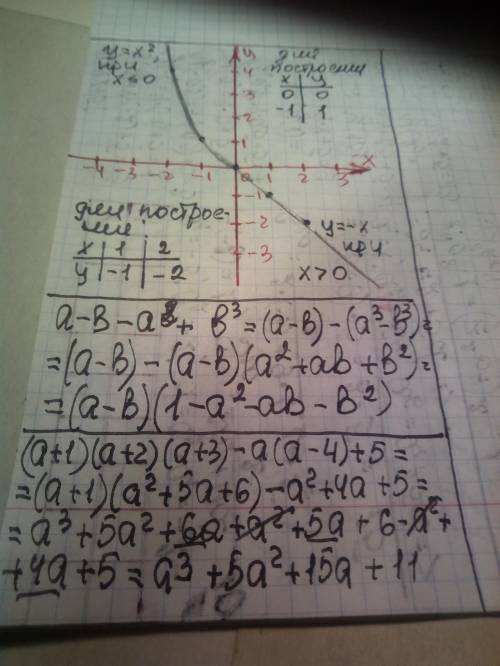 y=x²,
при
x≤0
y
для
построения
x y
0 0
-1 1
4
3
2
1
-4 -3 -2 -1 0 1 2 3 x
-1
-2
-3
y=-x
при
x>0
для построе-
ния
x 1 2
y -1 -2
a-b-a³+b³=(a-b)-(a³-b³)=
=(a-b)-(a-b)(a²+ab+b²)=
=(a-b)(1-a²-ab-b²)
(a+1)(a+2)(a+3)-a(a-4)+5=
=(a+1)(a²+5a+6)-a²+4a+5=
=a³+5a²+6a+a²+5a+6-a²+
+4a+5=a³+5a²+15a+11